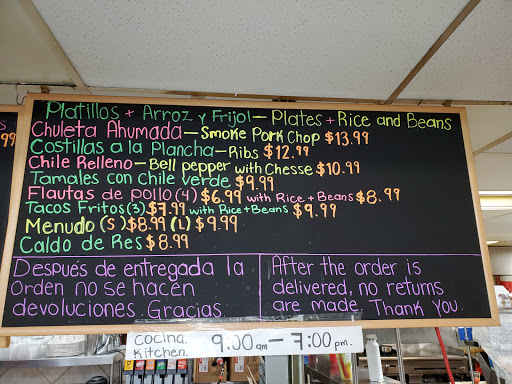 99
Platillos + Arroz y Frijol - Plates + Rice and Beans
Chuleta Ahumada - Smoke Pork Chop $13.99
Costillas a la Plancha - Ribs $12.99
Chile Relleno - Bell pepper with Chesse $10.99
Tamales con Chile verde $9.99
Flautas de pollo (4) $6.99 with Rice + Beans $8.99
Tacos Fritos (3) $7.99 with Rice + Beans $9.99
Menudo (S) $8.99 (L) $9.99
Caldo de Res $8.99
Después de entregada la
orden no se hacen
devoluciones. Gracias
After the order is
delivered, no returns
are made. Thank You.
Cocina
Kitchen
9:00 am - 7:00 pm.